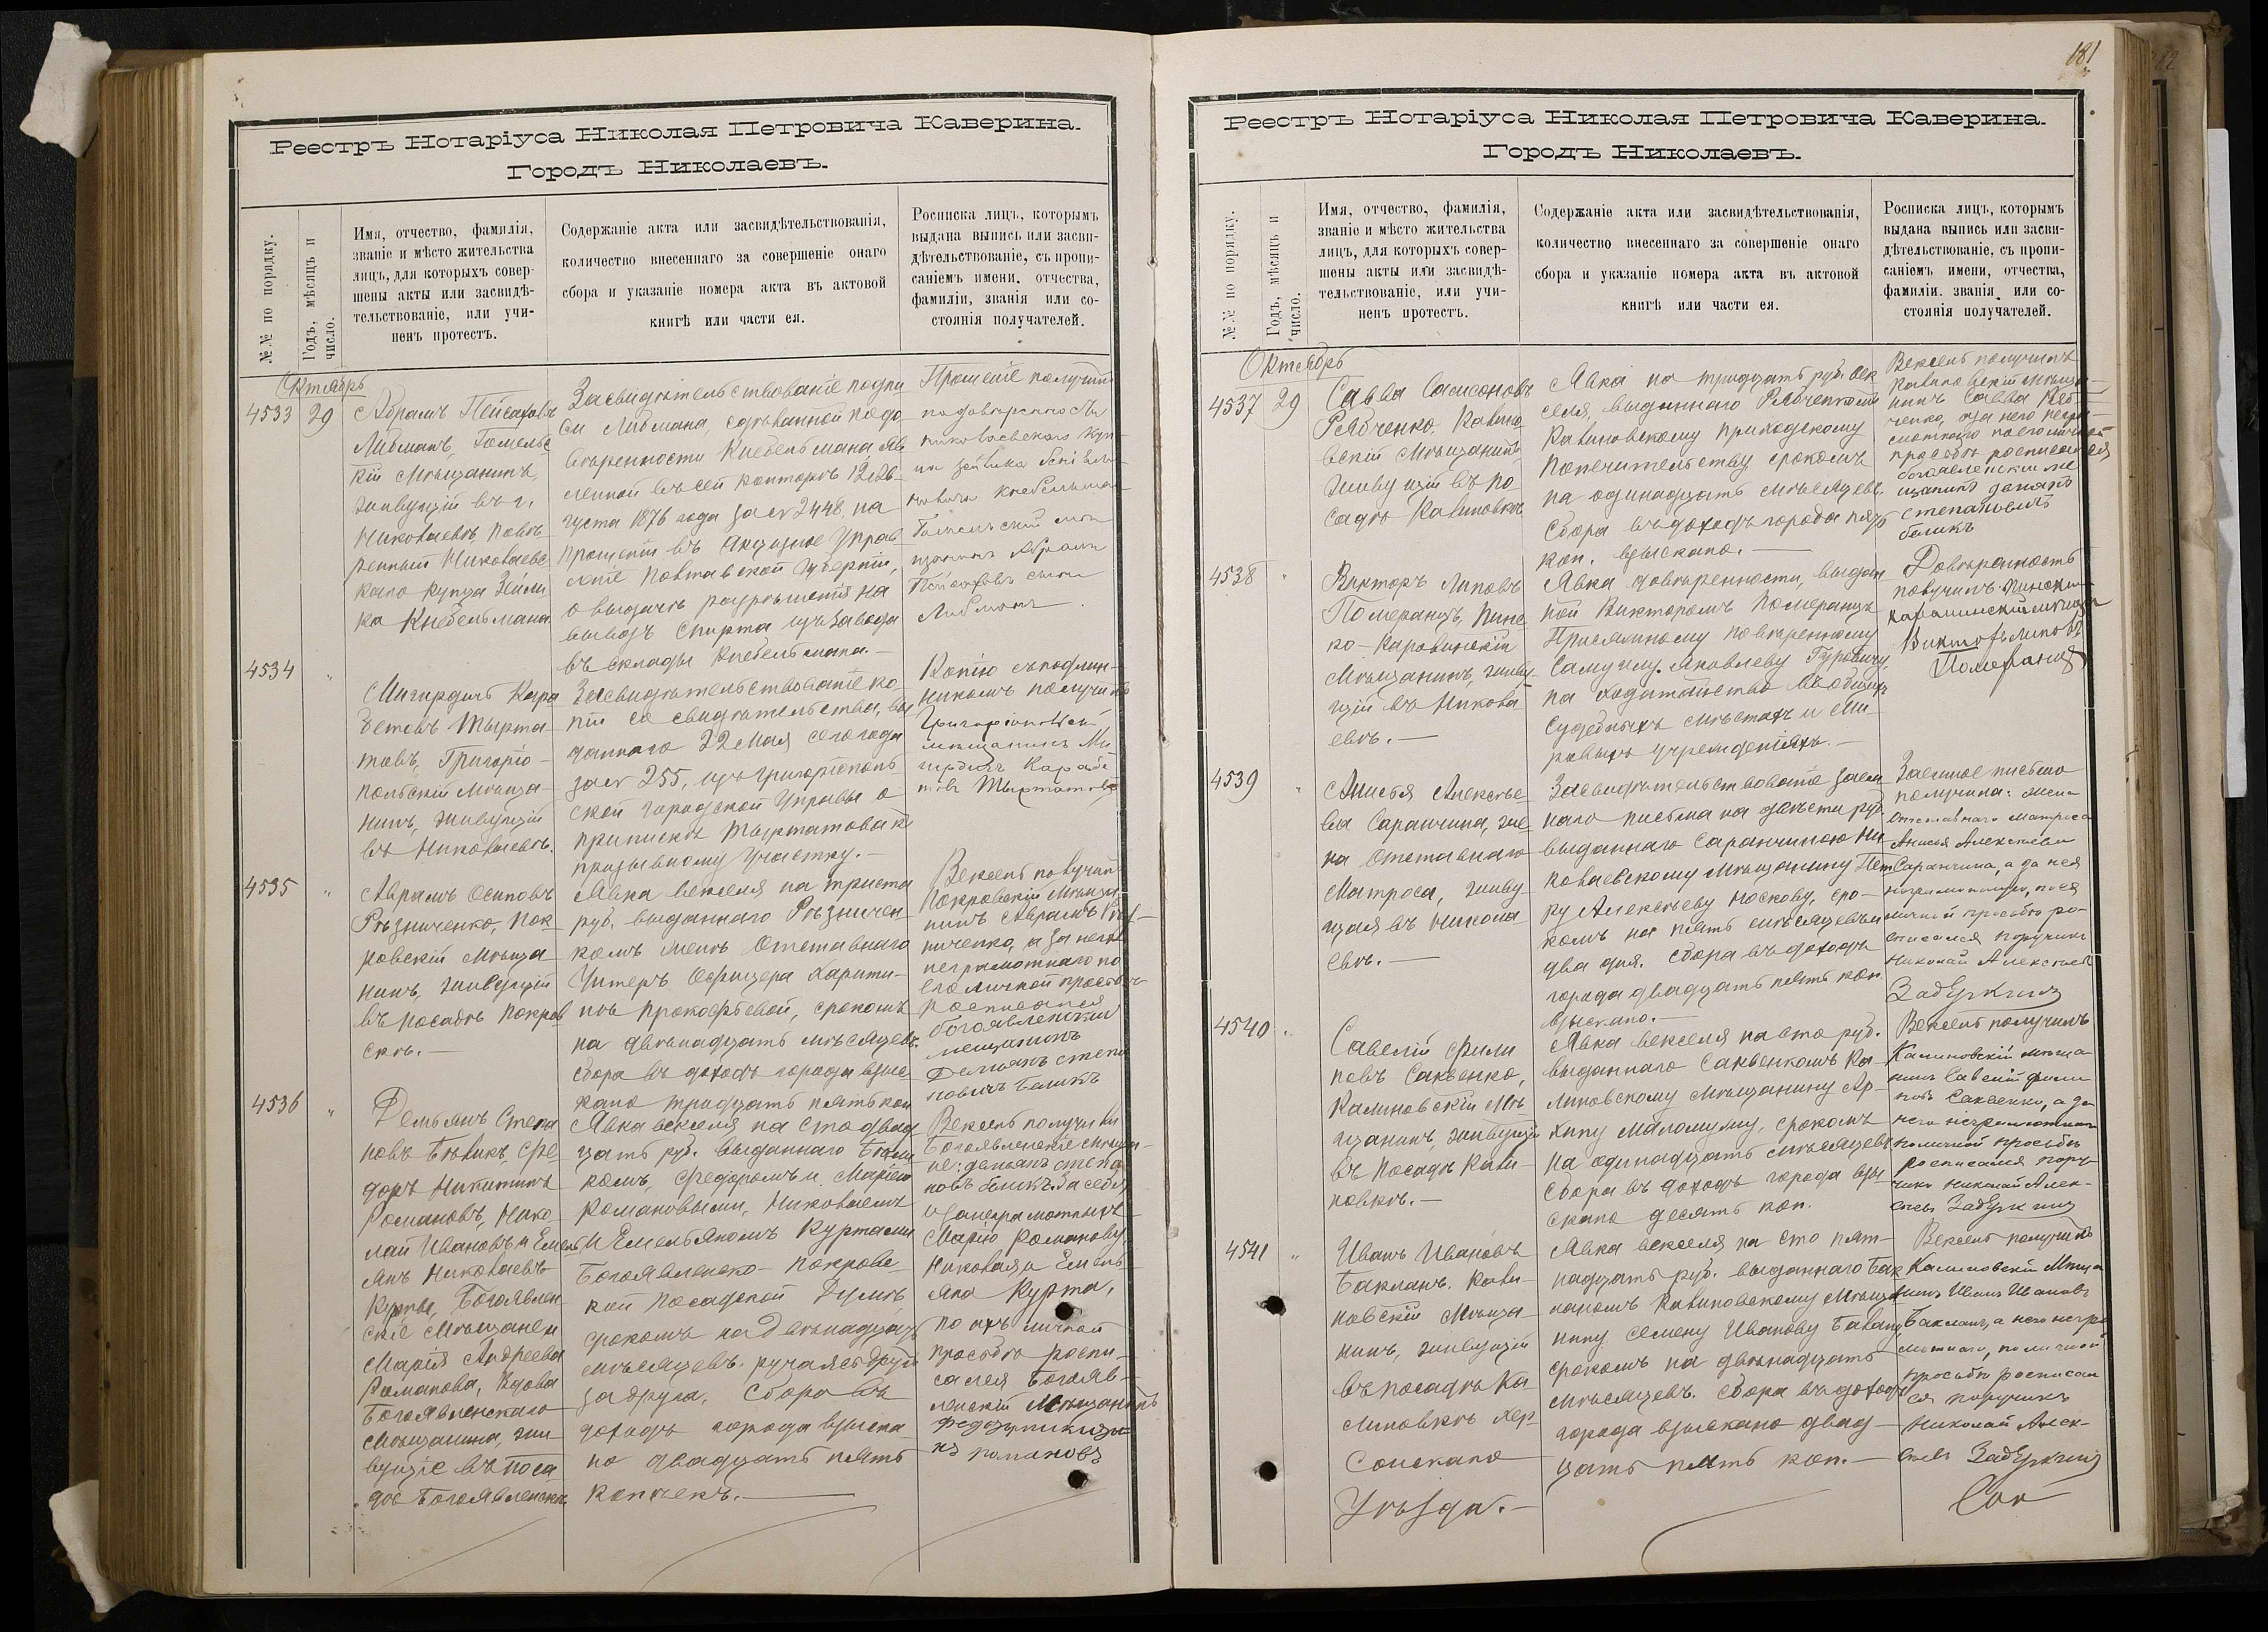 Реестръ Нотаріуса Николая Петровича Каверина.
Городъ Николаевъ.
№№ по порядку.
Годъ, мѣсяцъ и
число.
Имя, отчество, фамилія,
званіе и мѣсто жительства
лицъ, для которыхъ совер-
шены акты или засвидѣ-
тельствованіе, или учи-
ненъ протестъ.
Содержаніе акта или засвидѣтельствованія,
количество внесеннаго за совершеніе онаго
сбора и указаніе номера акта въ актовой
книгѣ или части ея.
Росписка лицъ, которымъ
выдана выпись или засви-
дѣтельствованіе, съ пропи-
саніемъ имени, отчества,
фамиліи, званія или со-
стоянія получателей.
Октябрь
4533
29
Абрамъ Пейсаховъ
Либманъ, Гомельс
кій мѣщанинъ,
живущій въ г.
Николаевѣ повѣ
ренный Николаевс
каго купца Зейли
ка Кнебельмана
Засвидѣтельствованіе подпи
си Либмана, сдѣланной по до
вѣренности Кнебельмана, яв
ленной въ сей конторѣ 12 Ав
густа 1876 года за № 2448, на
прошеніи въ Акцизное Управ
леніе Полтавской Губерніи,
о выдачѣ разрѣшенія на
вывозъ спирта изъ завода
въ склады Кнебельмана.—
Прошеніе получилъ
по довѣренности
николаевского куп
ца Зейлика
Кнебельмана
Гомельскій мѣ
щанинъ Абрамъ
Пейсаховъ сынъ
Либманъ.
4534
"
Мигирдичъ Кара
бетовъ Тырта
товъ, Григоріо-
польскій мѣща-
нинъ, живущій
въ Николаевѣ.
Засвидѣтельствованіе ко-
піи со свидѣтельства, вы
даннаго 22 Мая сего года
за № 255, изъ Григоріополь
ской городской Управы о
припискѣ Тыртатова къ
призывному участку.—
Копію съ подлин-
никомъ получилъ
Григоріопольскій
мѣщанинъ Ми
гирдичъ Карабе
товъ Тыртатовъ
4535
"
Аврамъ Осиповъ
Рѣзниченко, Пок
ровскій мѣща
нинъ, живущій
въ посадѣ Покров
скѣ.—
Явка векселя на триста
руб. выданнаго Рѣзничен-
комъ женѣ Отставнаго
Унтеръ Офицера Харити-
нѣ Прокофьевой, срокомъ
на двѣнадцать мѣсяцевъ.
Сбора въ доходъ города взыс
кано тридцать пять коп
Вексель получилъ
Покровскій мѣща
нинъ Аврамъ Рѣз-
ниченко, а за него
неграмотнаго по
его личной просьбѣ
росписался
богоявленскій
мещанинъ
Демьянъ степа
новичъ Беликъ
4536
"
Демьянъ Степа
новъ Бѣликъ, Фе-
доръ Никитинъ
Романовъ, Нико-
лай Ивановъ и Емель
янъ Николаевъ
Курты, Богоявлен
скіе мѣщане и
Марія Андреева
Романова, вдова
Богоявленскаго
мѣщанина, жи-
вущіе въ поса
дѣ Богоявленскѣ
Явка векселя на сто двад
цать руб. выданнаго Бѣли
комъ, Федоромъ и Маріею
Романовыми, Николаемъ
и Емельяномъ Куртами
Богоявленско-Покровс
кой Посадской Думѣ,
срокомъ на двѣнадцать
мѣсяцевъ. ручаясь другъ
за друга. Сбора въ
доходъ города взыска
но двадцать пять
копѣекъ.—
Вексель получили
Богоявленскіе мѣща-
не: демьянъ степа
новъ беликъ за себя
и за неграмотныхъ
Марію Романову,
Николая и Емель-
яна Курта,
по ихъ личной
просьбѣ роспи-
сался Богояв-
ленскій Мѣщанинъ
Федоръ никити
нъ романовъ
181
Реестръ Нотаріуса Николая Петровича Каверина.
Городъ Николаевъ.
№№ по порядку.
Годъ, мѣсяцъ и
число.
Имя, отчество, фамилія,
званіе и мѣсто жительства
лицъ, для которыхъ совер-
шены акты или засвидѣ-
тельствованіе, или учи-
ненъ протестъ.
Содержаніе акта или засвидѣтельствованія,
количество внесеннаго за совершеніе онаго
сбора и указаніе номера акта въ актовой
книгѣ или части ея.
Росписка лицъ, которымъ
выдана выпись или засви-
дѣтельствованіе, съ пропи-
саніемъ имени, отчества,
фамиліи, званія или со-
стоянія получателей.
Октябрь
4537
29
Савва Самсоновъ
Рябченко, Калино-
вскій мѣщанинъ,
живущій въ по
садѣ Калиновкѣ
Явка на тридцать руб. век
селя, выданнаго Рябченкомъ
Калиновскому приходскому
попечительству срокомъ
на одинадцать мѣсяцевъ.
Сбора въ доходъ города пять
коп. взыскано.—
Вексель получилъ
Калиновскій мѣща-
нинъ Савва Ряб-
ченко, а за него негра-
мотнаго по его личной
просьбѣ росписался
богоявленскій ме
щанинъ демьянъ
степановичъ
беликъ
4538
"
Викторъ Липовъ
Померанцъ, Пинс
ко-Каролинскій
мѣщанинъ, живу-
щій въ Никола-
евѣ.—
Явка довѣренности, выдан
ной Викторомъ Померанцъ
Присяжному повѣренному
Самуилу Яковлеву Гуровичу,
на ходатайство въ общихъ
судебныхъ мѣстахъ и Ми-
ровыхъ учрежденіяхъ.—
Довѣренность
получилъ Пинско-
Каролинскій мѣщан
Викторъ Липовъ
Померанцъ
4539
"
Анисья Алексѣе-
ва Саранчина, же-
на Отставнаго
Матроса, живу-
щая въ Никола-
евѣ.—
Засвидѣтельствованіе заем
наго письма на двѣсти руб.
выданнаго Саранчиною Ни-
колаевскому мѣщанину Пет
ру Алексѣеву Носкову, сро-
комъ на пять мѣсяцевъ и
два дня. Сбора въ доходъ
города двадцать пять коп
взыскано.—
Заемное письмо
получила: жена
отставнаго матроса
Анисья Алексѣева
Саранчина, а за нея
неграмотную, по ея
личной просьбѣ ро-
списался поручикъ
Николай Алексѣевъ
4540
"
Савелій Фили
повъ Саквенко,
Калиновскій мѣ-
щанинъ, живущій
въ посадѣ Кали-
новкѣ.—
Явка векселя на сто руб.
выданнаго Саквенкомъ Ка-
линовскому мѣщанину Ар-
хипу Малому, срокомъ
на одинадцать мѣсяцевъ
Сбора въ доходъ города взы-
скано десять коп.
Вексель получилъ
Калиновскій мѣща-
нинъ Савелій Фили
повъ Саквенко, а за
него неграмотнаго
по личной просьбѣ
росписался пору-
чикъ Николай Алек-
сѣевъ
4541
"
Иванъ Ивановъ
Бакланъ, Кали-
новскій мѣща-
нинъ, живущій
въ посадѣ Ка-
линовкѣ Хер-
сонскаго
Уѣзда.—
Явка векселя на сто пят-
надцать руб. выданнаго Бак
ланомъ Калиновскому мѣща
нину Семену Иванову
срокомъ на двѣнадцать
мѣсяцевъ. Сбора въ доходъ
города взыскано двад-
цать пять коп.—
Вексель получилъ
Калиновскій Мѣща
нинъ Иванъ Ивановъ
Бакланъ, а него негра
мотнаго, по личной
просьбѣ росписал
ся поручикъ
Николай Алек-
сѣевъ